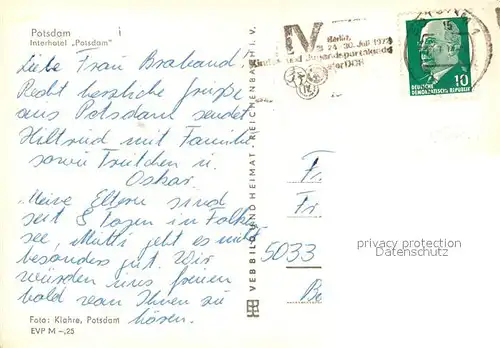 Potsdam
Interhotel „Potsdam"
Liebe Frau Braband!
Recht herzliche Grüße
aus Potsdam sendet
Hiltrud mit Familie
sowie Trutchen u.
Oskar.
Meine Eltern sind
seit 8 Tagen in
see, Mutti geht es nicht
besonders gut. Wir
würden uns freuen
bald von Ihnen zu
hören.
Foto: Klahre, Potsdam
EVP M –,25
VEB BILD UND HEIMAT · REICHENBACH i. V.
IV
Berlin,
24.-30. Juli 1973
Kinder- und Jugendspartakiade
der DDR
10
DEUTSCHE
DEMOKRATISCHE REPUBLIK
Fr.
Fr.
5033
privacy protection
Datenschutz